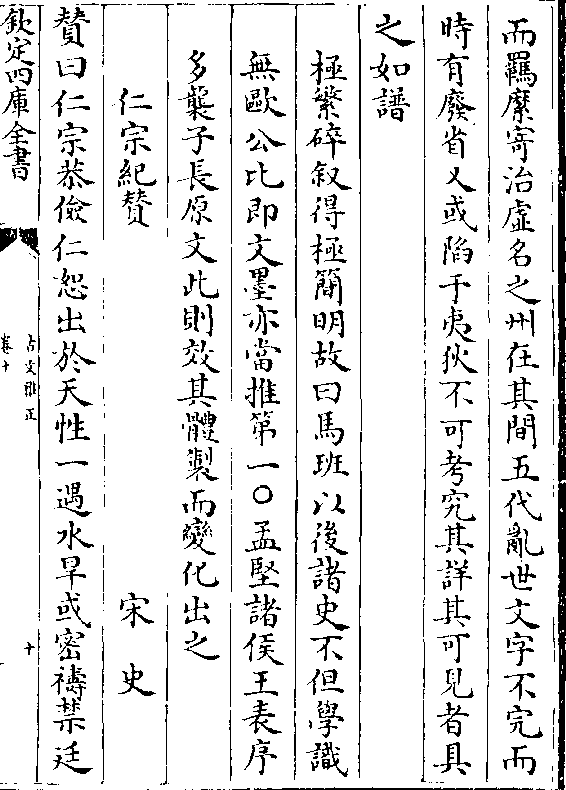 而羈縻寄治虛名之州在其間五代亂世文字不完而
時有廢省又或陷于夷狄不可考究其詳其可見者具
之如譜
極繁碎叙得極簡明故曰馬班以後諸史不但學識
無歐公比即文墨亦當推第一○孟堅諸侯王表序
多襲子長原文此則效其體製而變化出之
仁宗紀贊 宋史
贊曰仁宗恭儉仁恕出於天性一遇水旱或密禱禁廷
欽定四庫全書
古文雅正
卷十
十